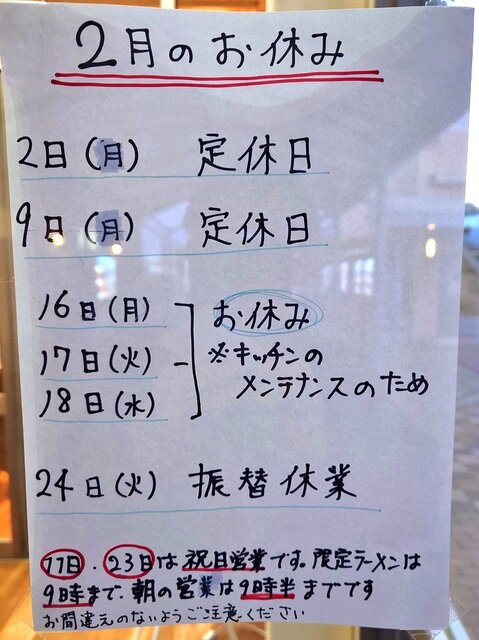 2月のお休み
2日(月) 定休日
9日(月) 定休日
16日(月) お休み
17日(火) ※キッチンの
18日(水) メンテナンスのため
24日(火) 振替休業
11日・23日は祝日営業です。限定ラーメンは
9時まで、朝の営業は9時半までです
お間違えのないようご注意ください